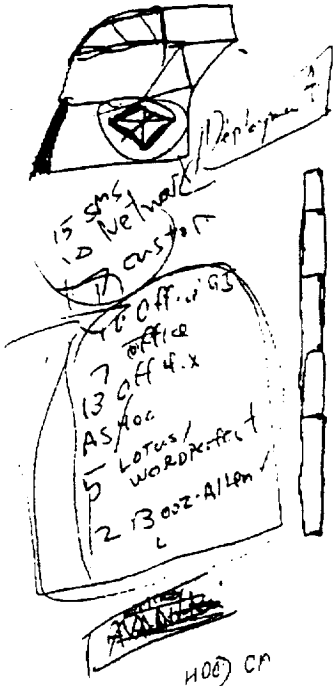 Deployment
15 SMS
10 Network
custom
Office 95
7 office
13 Off 4.x
AS/400
5 LOTUS/
WORDPerfect
2 Booz-Allen